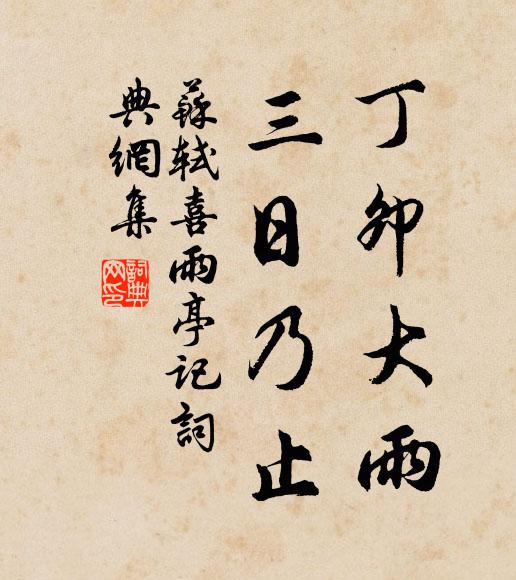 丁卯大雨
三日乃止
蘇軾喜雨亭記詞
典網集
詞典
网印